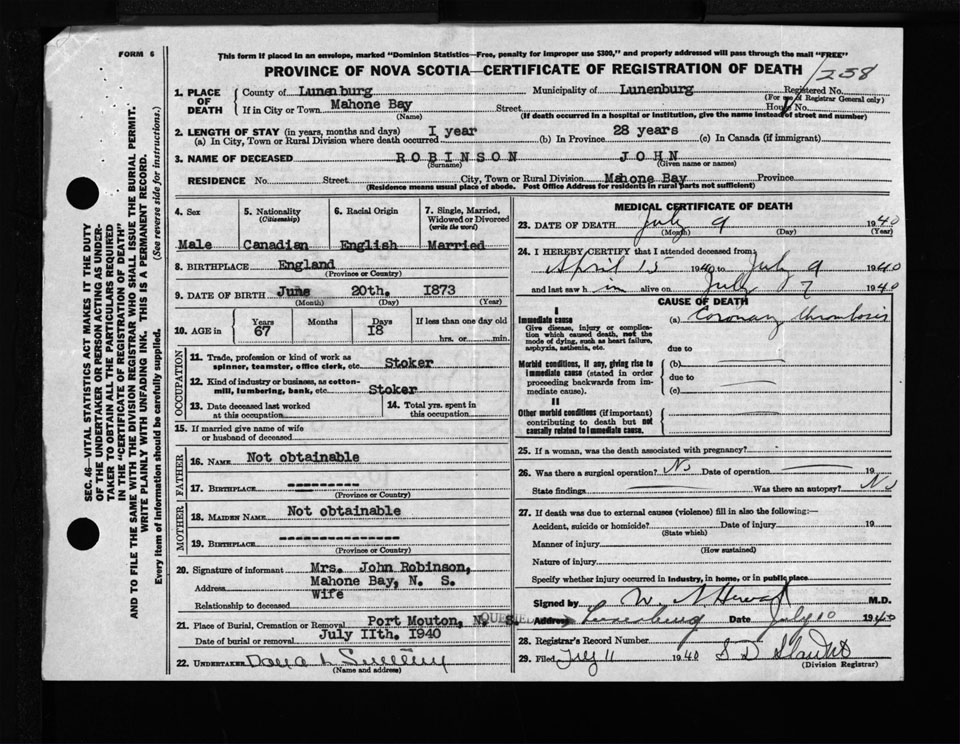 FORM 6
This form if placed in an envelope, marked "Dominion Statistics—Free, penalty for improper use $300," and properly addressed will pass through the mail "FREE"
PROVINCE OF NOVA SCOTIA—CERTIFICATE OF REGISTRATION OF DEATH
238
1. PLACE OF DEATH
County of Lunenburg Municipality of Lunenburg Registered No.
(For use of Registrar General only)
If in City or Town Mahone Bay Street House No.
(Name) (If death occurred in a hospital or institution, give the name instead of street and number)
2. LENGTH OF STAY (in years, months and days) I year (b) In Province 28 years (c) In Canada (if immigrant)
(a) In City, Town or Rural Division where death occurred
3. NAME OF DECEASED ROBINSON JOHN
(Surname) (Given name or names)
RESIDENCE No. Street City, Town or Rural Division Mahone Bay Province
(Residence means usual place of abode. Post Office Address for residents in rural parts not sufficient)
4. Sex 5. Nationality (Citizenship) 6. Racial Origin 7. Single, Married, Widowed or Divorced (write the word)
Male Canadian English Married
8. BIRTHPLACE England
(Province or Country)
9. DATE OF BIRTH June 20th. 1873
(Month) (Day) (Year)
10. AGE in Years Months Days If less than one day old
67 I8 hrs. or min.
OCCUPATION
11. Trade, profession or kind of work as spinner, teamster, office clerk, etc. Stoker
12. Kind of industry or business, as cotton-mill, lumbering, bank, etc. Stoker
13. Date deceased last worked at this occupation
14. Total yrs. spent in this occupation
15. If married give name of wife or husband of deceased
FATHER
16. NAME Not obtainable
17. BIRTHPLACE ---------
(Province or Country)
MOTHER
18. MAIDEN NAME Not obtainable
19. BIRTHPLACE ----------------
(Province or Country)
20. Signature of informant Mrs. John Robinson,
Address Mahone Bay, N. S.
Relationship to deceased Wife
21. Place of Burial, Cremation or Removal Port Mouton, N. S.
Date of burial or removal July IIth. 1940
22. UNDERTAKER
(Name and address)
MEDICAL CERTIFICATE OF DEATH
23. DATE OF DEATH July 9 1940
(Month) (Day) (Year)
24. I HEREBY CERTIFY that I attended deceased from
April 15 1940 to July 9 1940
and last saw him alive on July 7 1940
CAUSE OF DEATH
I
Immediate cause (a) Coronary thrombosis
Give disease, injury or complication which caused death, not the mode of dying, such as heart failure, asphyxia, asthenia, etc.
due to
Morbid conditions, if any, giving rise to immediate cause (stated in order proceeding backwards from immediate cause).
(b)
due to
(c)
II
Other morbid conditions (if important) contributing to death but not causally related to immediate cause.
25. If a woman, was the death associated with pregnancy?
26. Was there a surgical operation? No Date of operation 19
State findings Was there an autopsy? No
27. If death was due to external causes (violence) fill in also the following:—
Accident, suicide or homicide? Date of injury 19
(State which)
Manner of injury
(How sustained)
Nature of injury
Specify whether injury occurred in industry, in home, or in public place
Signed by M.D.
Address Lunenburg Date July 10 1940
28. Registrar's Record Number
29. Filed July 11 1940
(Division Registrar)
SEC. 46—VITAL STATISTICS ACT MAKES IT THE DUTY
OF THE UNDERTAKER OR PERSON ACTING AS UNDER-
TAKER TO OBTAIN ALL THE PARTICULARS REQUIRED
IN THE "CERTIFICATE OF REGISTRATION OF DEATH"
AND TO FILE THE SAME WITH THE DIVISION REGISTRAR WHO SHALL ISSUE THE BURIAL PERMIT.
WRITE PLAINLY WITH UNFADING INK. THIS IS A PERMANENT RECORD.
Every item of information should be carefully supplied. (See reverse side for instructions.)